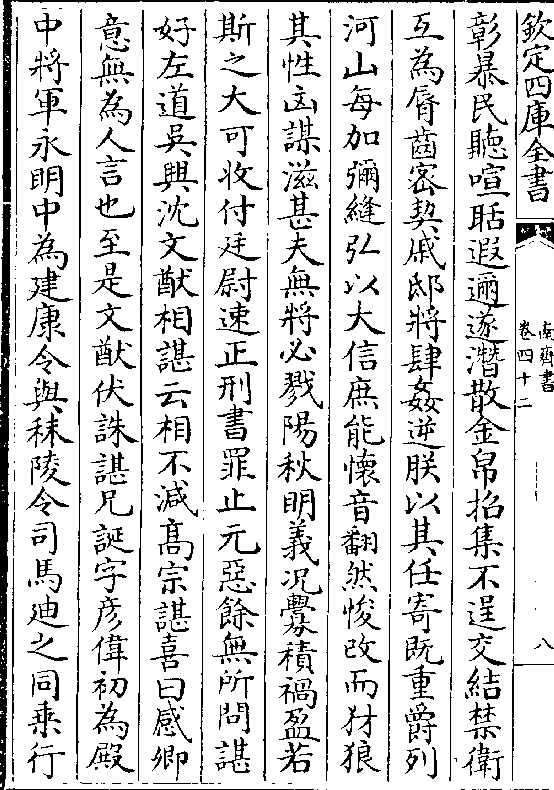 欽定四庫全書
南齊書
卷四十二
八
彰暴民聽喧聒遐邇遂潛散金帛招集不逞交結禁衛
互為脣齒密契戚邸將肆姦逆朕以其任寄既重爵列
河山每加彌縫弘以大信庶能懷音翻然悛改而豺狼
其性凶謀滋甚夫無將必戮陽秋明義況釁積禍盈若
斯之大可收付廷尉速正刑書罪止元惡餘無所問諶
好左道吳興沈文猷相諶云相不減髙宗諶喜曰感卿
意無為人言也至是文猷伏誅諶兄誕字彦偉初為殿
中將軍永明中為建康令與秣陵令司馬廸之同乗行